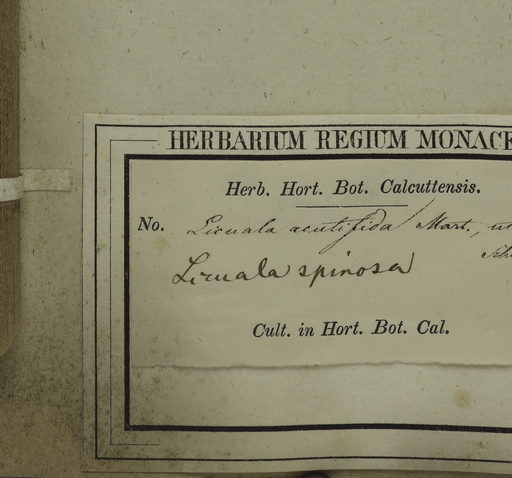 HERBARIUM REGIUM MONAC
Herb. Hort. Bot. Calcuttensis.
No. Licuala acutifida Mart.,
Licuala spinosa
Cult. in Hort. Bot. Cal.